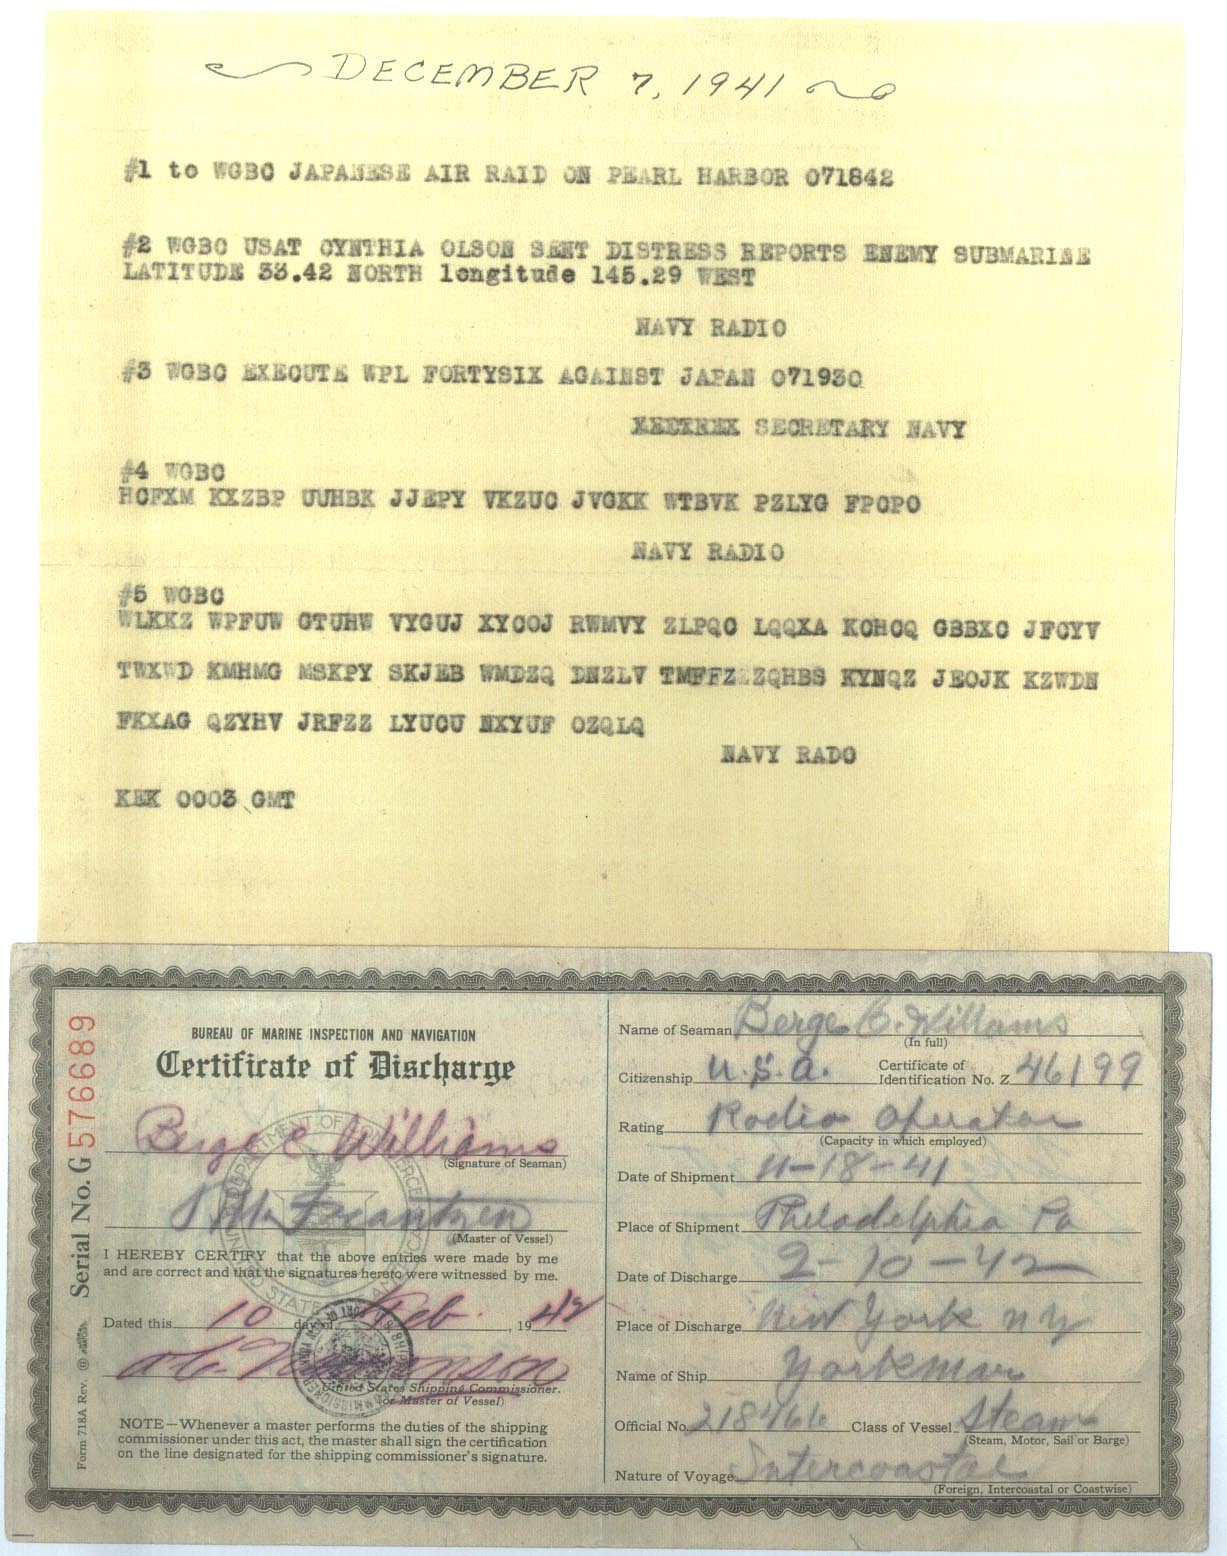 DECEMBER 7, 1941
#1 to WGBC JAPANESE AIR RAID ON PEARL HARBOR 071842
#2 WGBC USAT CYNTHIA OLSON SENT DISTRESS REPORTS ENEMY SUBMARINE
LATITUDE 33.42 NORTH longitude 145.29 WEST
NAVY RADIO
#3 WGBC EXECUTE WPL FORTYSIX AGAINST JAPAN 071930
SECRETARY NAVY
#4 WGBC
HCFXM KXZBP UUHBK JJEPY VKZUC JVGKK WTBVK PZLYG FPCPO
NAVY RADIO
#5 WGBC
WLKKZ WPFUW GTUHW VYGUJ XYCOJ RWMVY ZLPQC LQQXA KCHCQ GBBXC JFCYV
TWXWD KMHMG MSKPY SKJEB WMDZQ DNZLV TMFFZ ZQHBS KYNQZ JEOJK KZWDN
FKXAG QZYHV JRFZZ LYUCU NXYUF OZQLQ
NAVY RADO
KEK 0003 GMT
Serial No. G 576689
Form 718A Rev.
BUREAU OF MARINE INSPECTION AND NAVIGATION
Certificate of Discharge
Berge C. Williams
(Signature of Seaman)
Frantzen
(Master of Vessel)
I HEREBY CERTIFY that the above entries were made by me
and are correct and that the signatures hereto were witnessed by me.
Dated this 10 day of Feb. , 19 42
United States Shipping Commissioner.
(or Master of Vessel)
NOTE—Whenever a master performs the duties of the shipping
commissioner under this act, the master shall sign the certification
on the line designated for the shipping commissioner's signature.
Name of Seaman Berge C. Williams
(In full)
Citizenship U.S.A. Certificate of
Identification No. Z 46199
Rating Radio Operator
(Capacity in which employed)
Date of Shipment 11-18-41
Place of Shipment Philadelphia Pa
Date of Discharge 2-10-42
Place of Discharge New York NY
Name of Ship Yorkmar
Official No. 218466 Class of Vessel Steam
(Steam, Motor, Sail or Barge)
Nature of Voyage Intercoastal
(Foreign, Intercoastal or Coastwise)